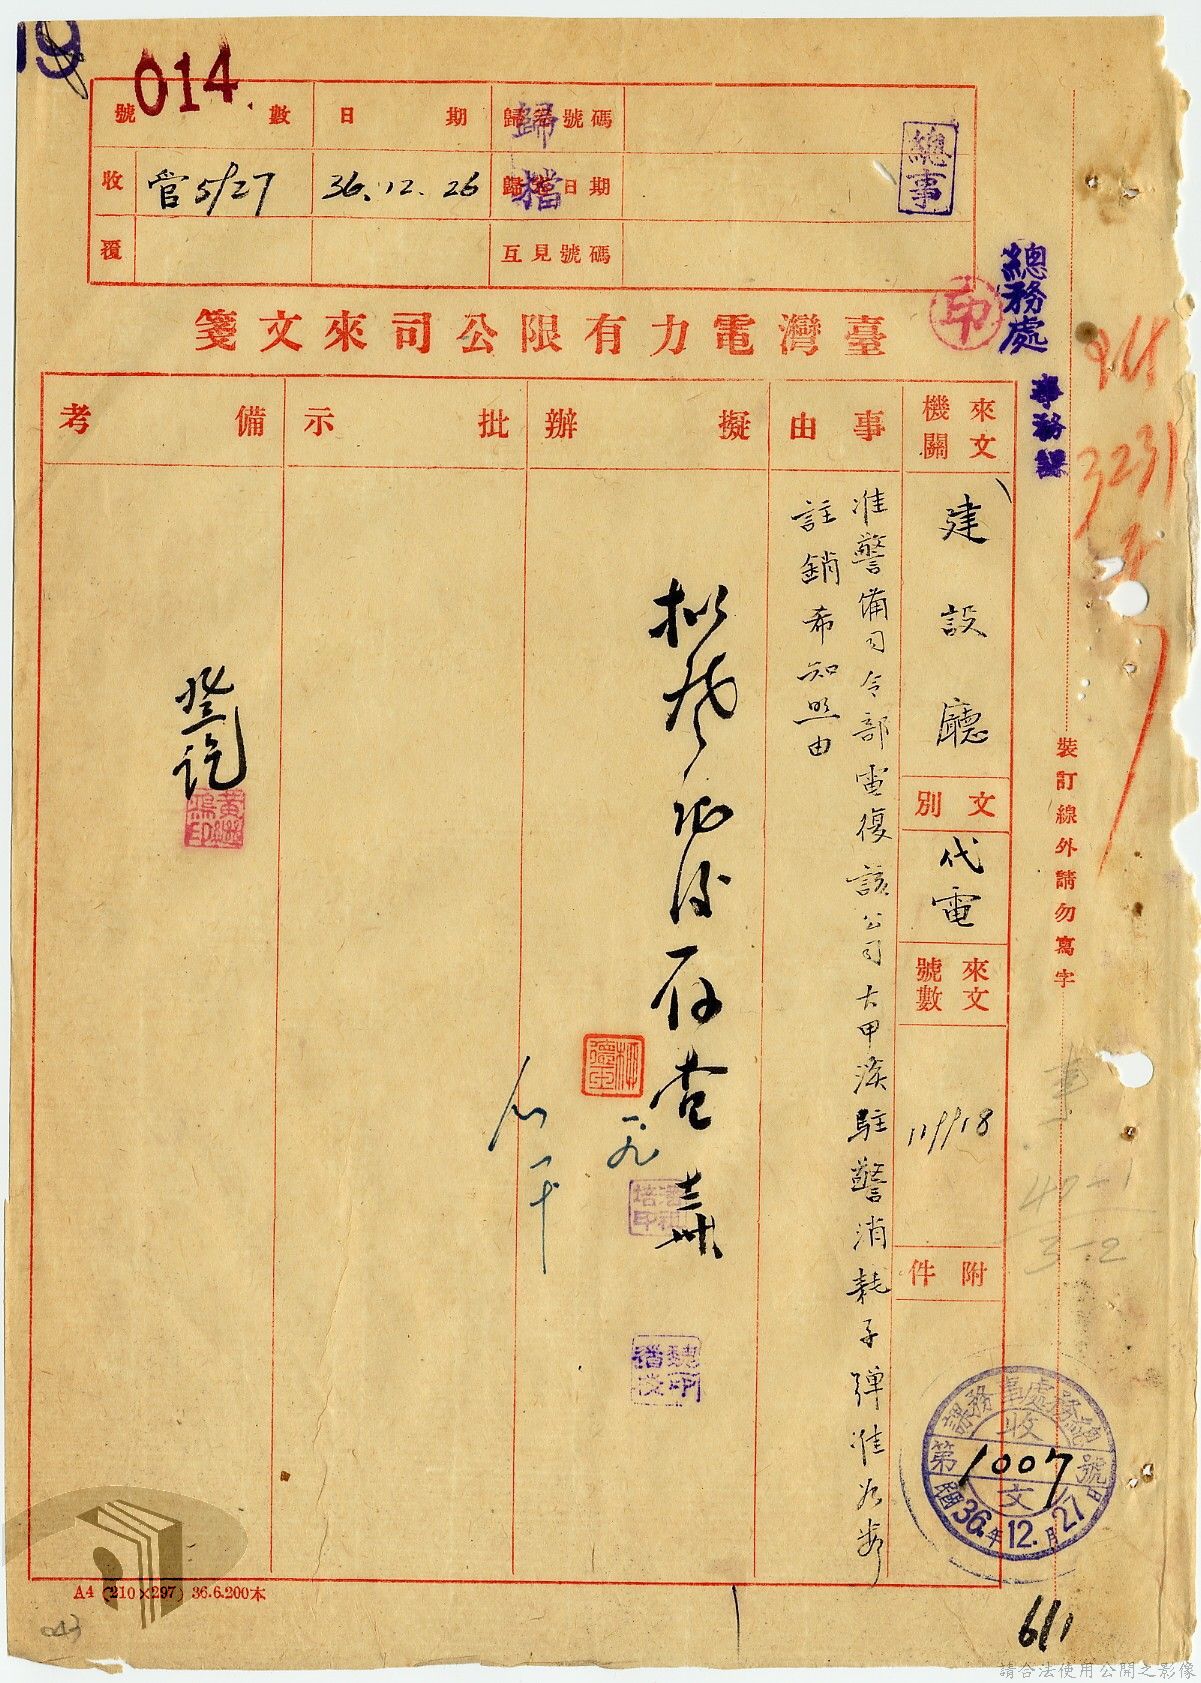 19
014
號數
日期
歸檔號碼
總事
收
官5127
36.12.26
歸檔日期
歸檔
覆
互見號碼
總務處
事務課
印
臺灣電力有限公司來文箋
3231
來文機關
事由
擬辦
批示
備考
建設廳
文別
代電
來文號數
119918
附件
准警備司令部電復該公司大甲溪駐警消耗子彈准於
註銷希知照由
存查
登記
一.九
裝訂線外請勿寫字
47-1
3-2
總務處事務課
收文
第1007號
民國36年12月27日
A4 (210×297) 36.6.200本
043
611
請合法使用公開之影像